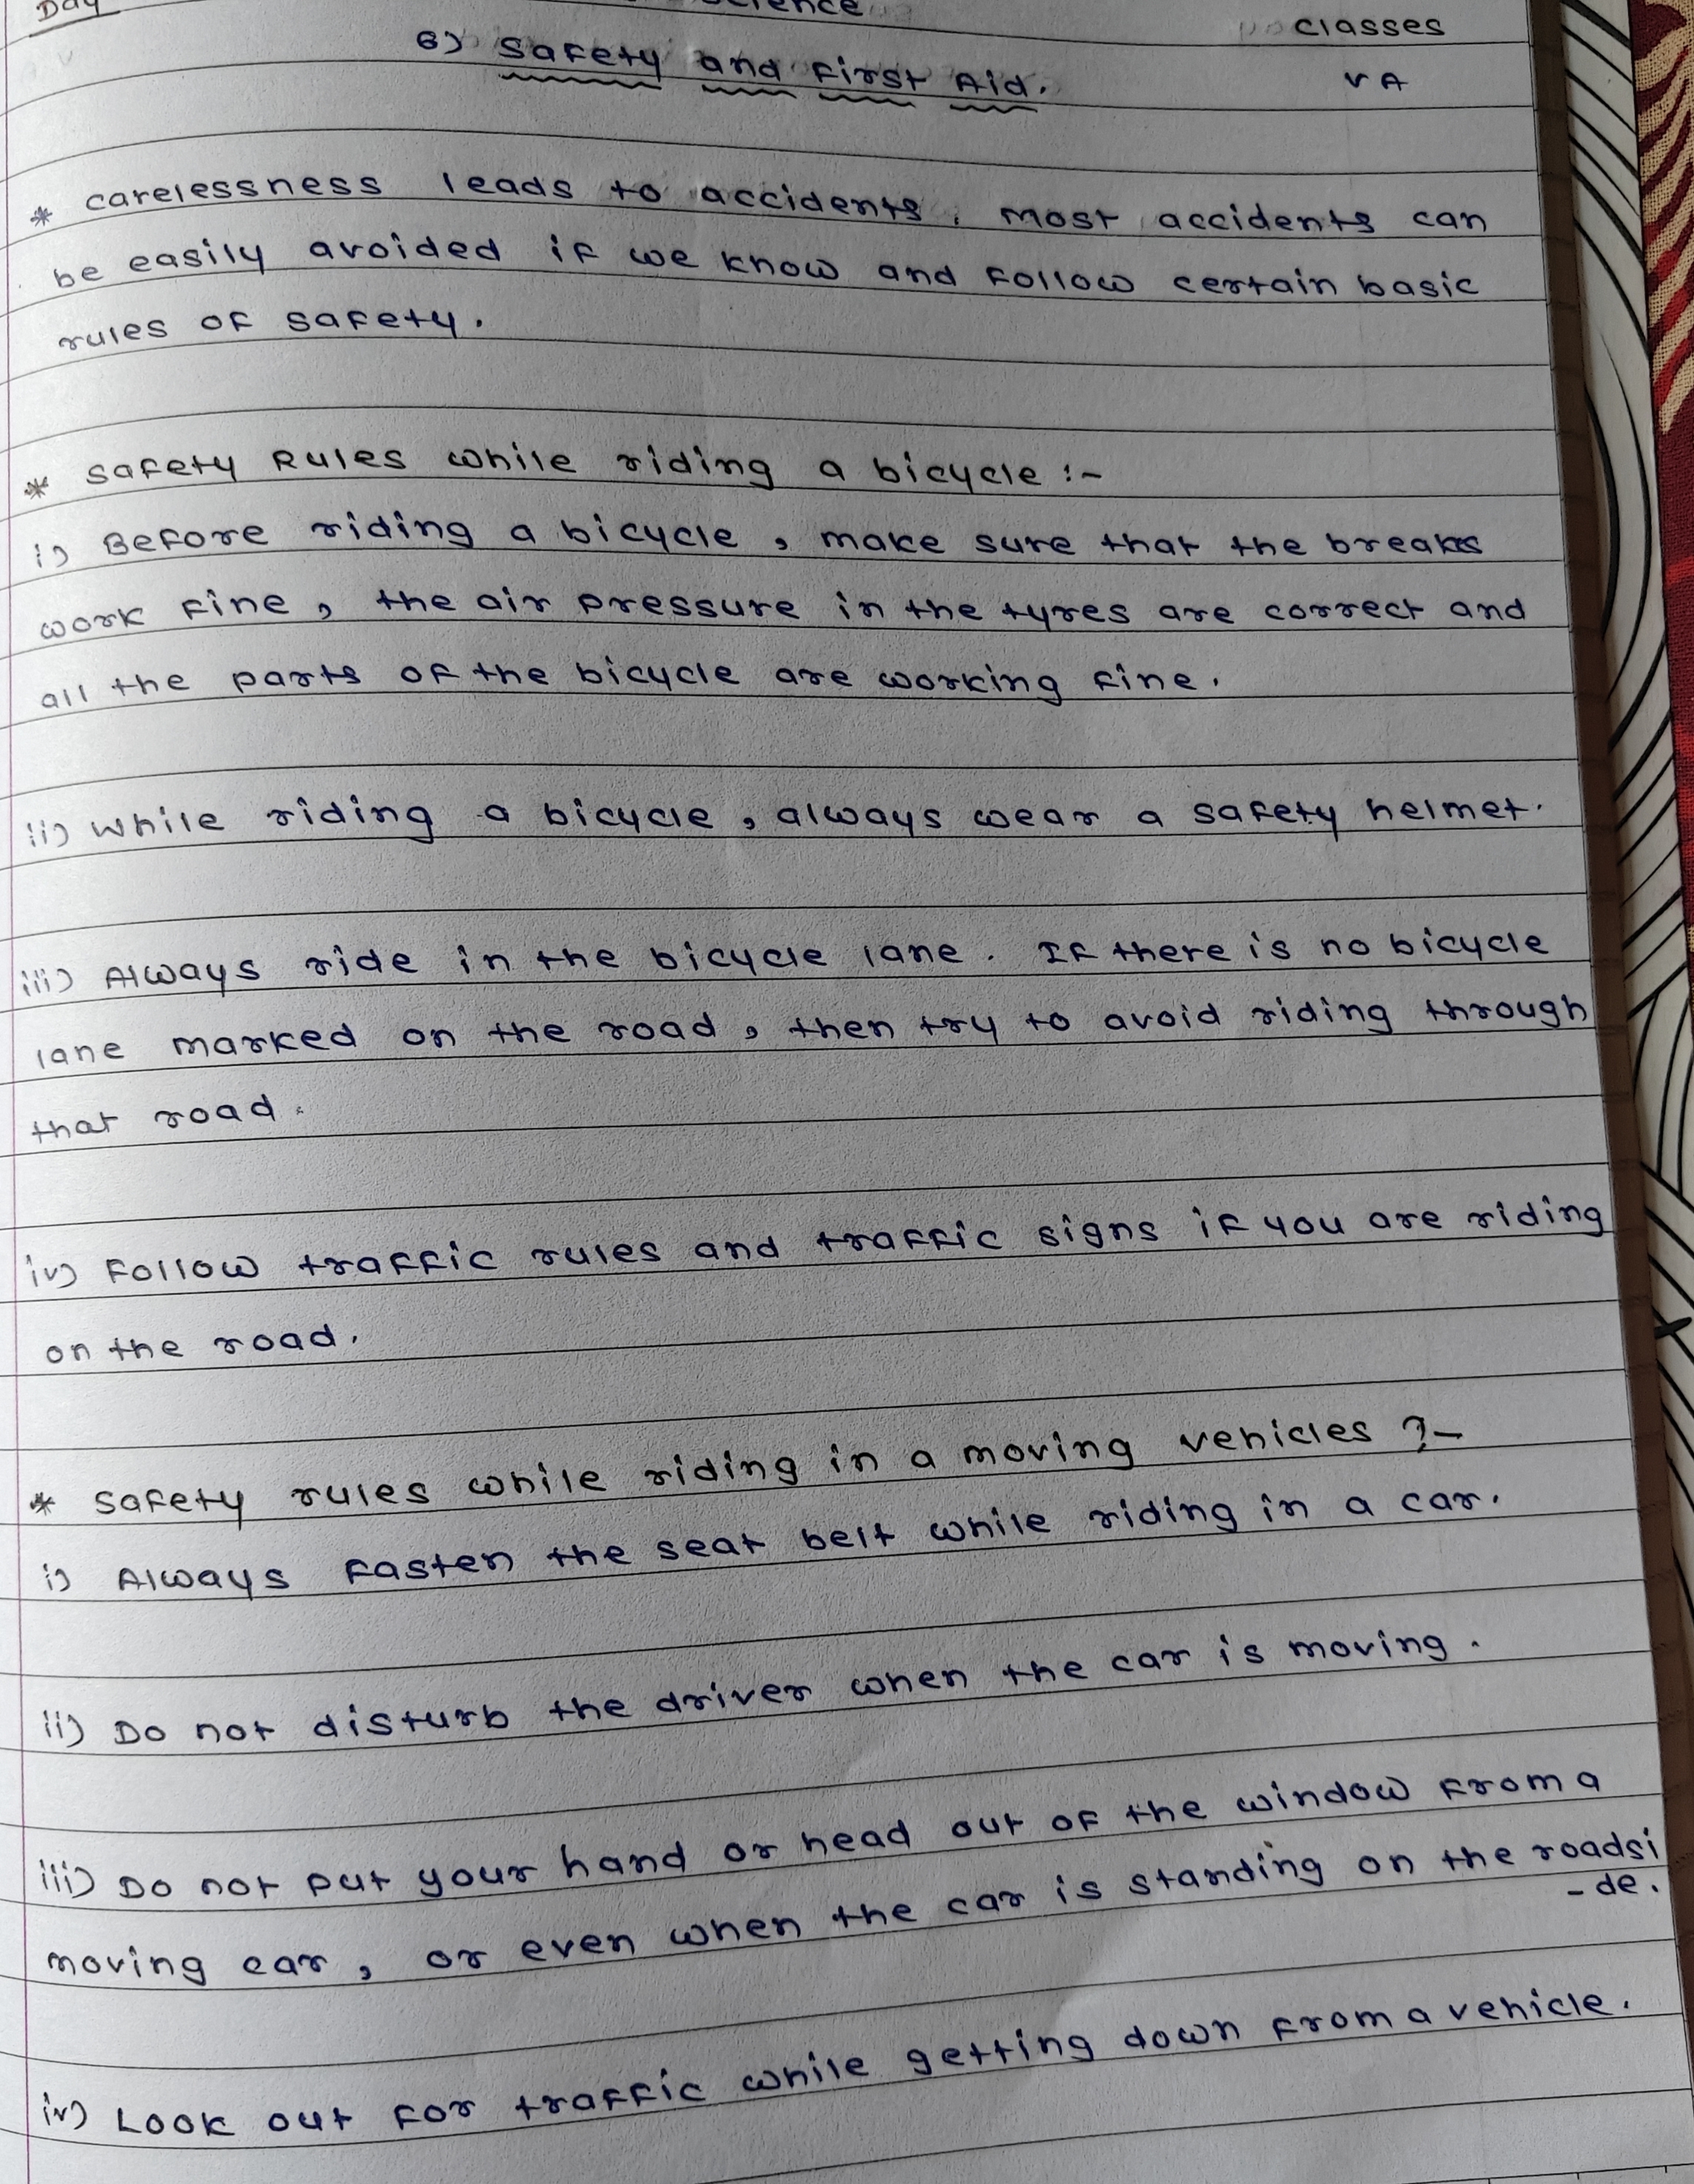 Day
Science
Classes
6) Safety and First Aid.
V A
* carelessness leads to accidents. Most accidents can
be easily avoided if we know and follow certain basic
rules of safety.
* Safety Rules while riding a bicycle :-
i) Before riding a bicycle, make sure that the breaks
work fine, the air pressure in the tyres are correct and
all the parts of the bicycle are working fine.
ii) While riding a bicycle, always wear a safety helmet.
iii) Always ride in the bicycle lane. If there is no bicycle
lane marked on the road, then try to avoid riding through
that road.
iv) Follow traffic rules and traffic signs if you are riding
on the road.
* Safety rules while riding in a moving vehicles ?-
i) Always fasten the seat belt while riding in a car.
ii) Do not disturb the driver when the car is moving.
iii) Do not put your hand or head out of the window from a
moving car, or even when the car is standing on the roadsi
-de.
iv) Look out for traffic while getting down from a vehicle.